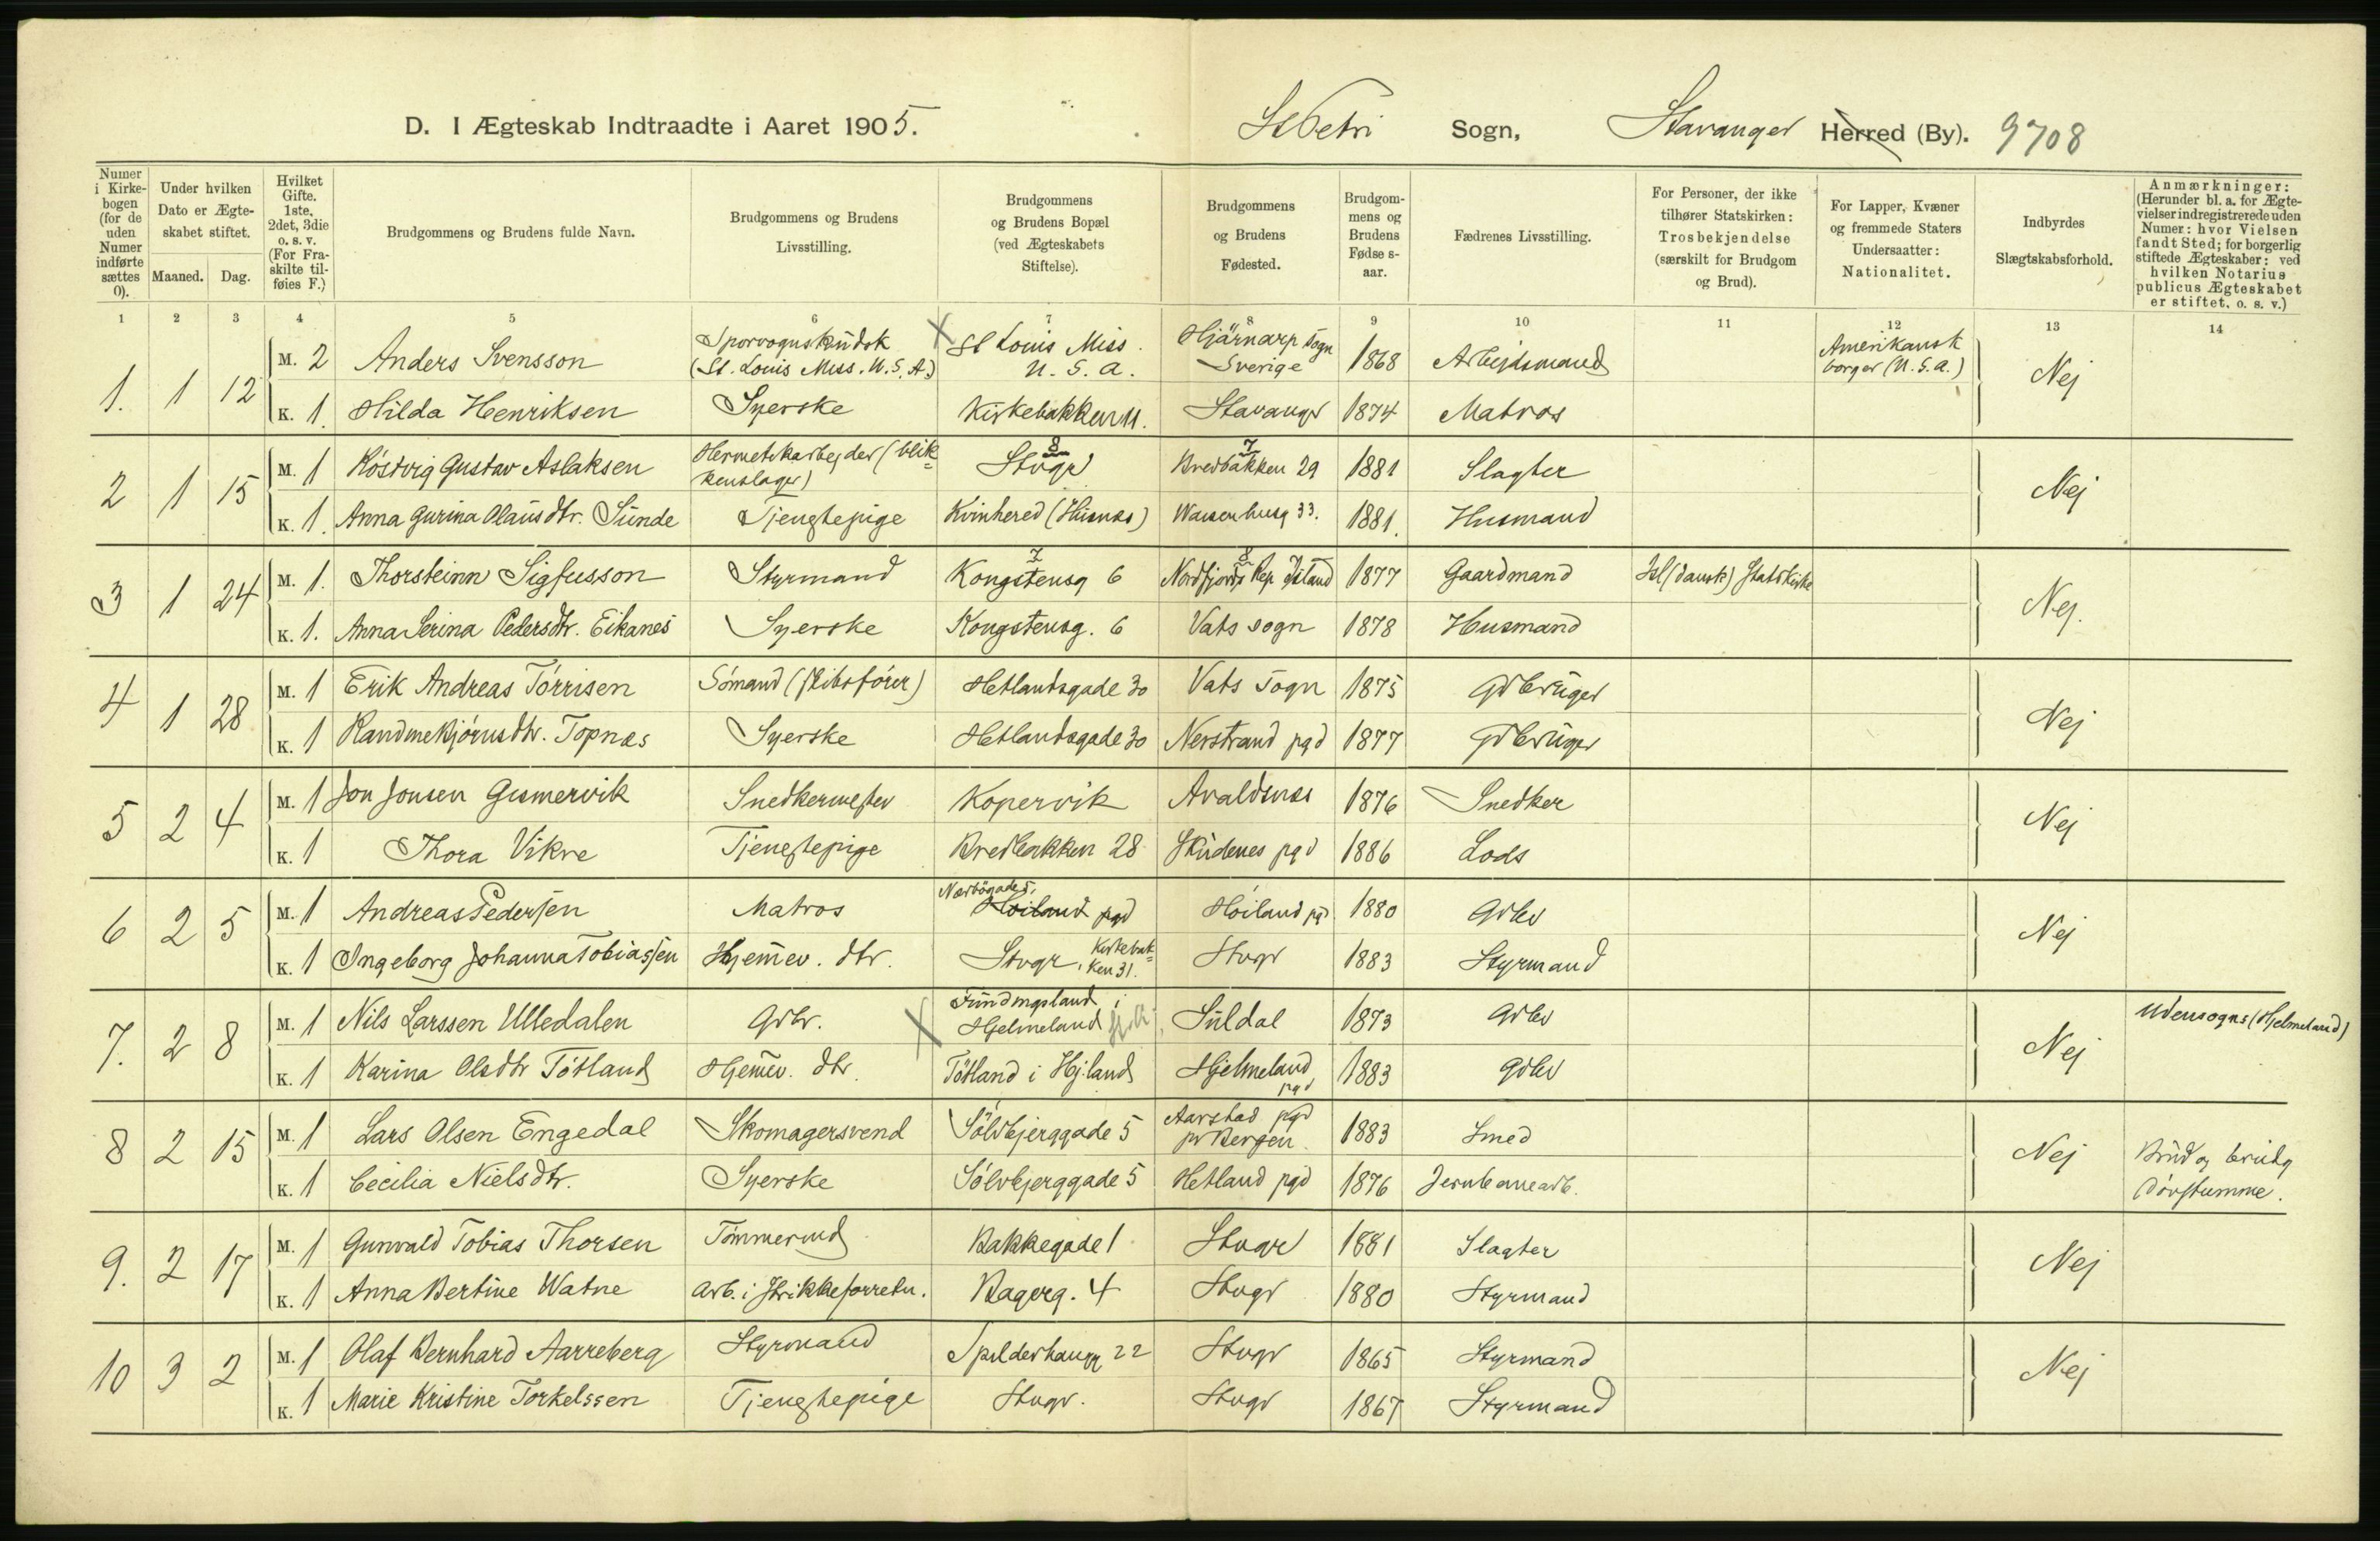 D. I Ægteskab Indtraadte i Aaret 1905. St Petri Sogn, Stavanger Herred (By). 9708
Numer i Kirkebogen (for de uden Numer indførte sættes 0).
Under hvilken Dato er Ægteskabet stiftet.
Maaned. Dag.
Hvilket Gifte. 1ste, 2det, 3die o. s. v. (For Fraskilte tilføies F.)
Brudgommens og Brudens fulde Navn.
Brudgommens og Brudens Livsstilling.
Brudgommens og Brudens Bopæl (ved Ægteskabets Stiftelse).
Brudgommens og Brudens Fødested.
Brudgommens og Brudens Fødselsaar.
Fædrenes Livsstilling.
For Personer, der ikke tilhører Statskirken: Trosbekjendelse (særskilt for Brudgom og Brud).
For Lapper, Kvæner og fremmede Staters Undersaatter: Nationalitet.
Indbyrdes Slægtskabsforhold.
Anmærkninger: (Herunder bl. a. for Ægtevielser indregistrerede uden Numer: hvor Vielsen fandt Sted; for borgerlig stiftede Ægteskaber: ved hvilken Notarius publicus Ægteskabet er stiftet, o. s. v.)
1 2 3 4 5 6 7 8 9 10 11 12 13 14
1. 1 12 M. 2 Anders Svensson Sporvognskudsk (St. Louis Miss. U. S. A.) X St Louis Miss. U. S. A. Hjärnarp sogn Sverige 1868 Arbejdsmand Amerikansk borger (U. S. A.) Nej
K. 1. Hilda Henriksen Syerske Kirkebakken 11. Stavanger 1874 Matros
2 1 15 M. 1 Röstvig Gustav Aslaksen Hermetikarbejder (blikkenslager) 8 Stvgr 7 Bredbakken 29 1881 Slagter Nej
K. 1. Anna Gurina Olausdtr. Sunde Tjenestepige Kvinhered (Husnes) Waisenhusg 33. 1881. Husmand
3 1 24 M. 1. Thorsteinn Sigfusson Styrmand 7 Kongstensg 6 8 Nordfjords Rep Island 1877 Gaardmand Isl (dansk) Statskirke Nej.
K. 1. Anna Serina Pedersdtr. Eikanes Syerske Kongstensg. 6 Vats sogn 1878 Husmand
4 1 28 M. 1 Erik Andreas Tórrisen Sómand (skibsfórer) Hetlandsgade 30 Vats sogn 1875 Gdbruger Nej
K. 1 Randine Bjórnsdtr. Topnes Syerske Hetlandsgade 30 Nerstrand pgd 1877 Gdbruger
5 2 4 M. 1 Jon Jonsen Gismervik Snedkermester Kopervik Avaldsnes 1876 Snedker Nej
K. 1 Thora Vikre Tjenestepige Bredbakken 28 Skudenes pgd 1886 Lods
6 2 5 M. 1 Andreas Pedersen Matros Nærbögade 5, Hóiland pgd Hóiland pgd. 1880 Gdbr Nej
K. 1 Ingeborg Johanna Tobiassen Hjemmev. dtr. Stvgr, Kirkebakken 31. Stvgr 1883 Styrmand
7. 2 8 M. 1 Nils Larssen Ulledalen Gdbr. X Fundingsland i Hjelmeland Suldal 1873 Gdbr Nej Udensogns (Hjelmeland)
K. 1 Karina Olsdtr Tótland Hjemmev. dtr. Tótland i Hj.land Hjelmeland pgd 1883 Gdbr
8 2 15 M. 1 Lars Olsen Engedal Skomagersvend Sólvbjerggade 5 Aarstad pgd pr Bergen. 1883 Smed Nej Brud og brudg dövstumme.
K. 1 Cecilia Nielsdtr. Syerske Sólvbjerggade 5 Hetland pgd 1876 Jernbanearb.
9. 2 17 M. 1 Gunvald Tobias Thorsen Tómmermd Bakkegade 1 Stvgr 1881 Slagter Nej
K. 1 Anna Bertine Watne Arb. i Strikkeforretn. Bagerg. 4 Stvgr 1880 Styrmand
10 3 2 M. 1 Olaf Bernhard Aarreberg Styrmand Spilderhaugg 22 Stvgr 1865 Styrmand Nej
K. 1 Marie Kristine Torkelssen Tjenestepige Stvgr. Stvgr 1867 Styrmand